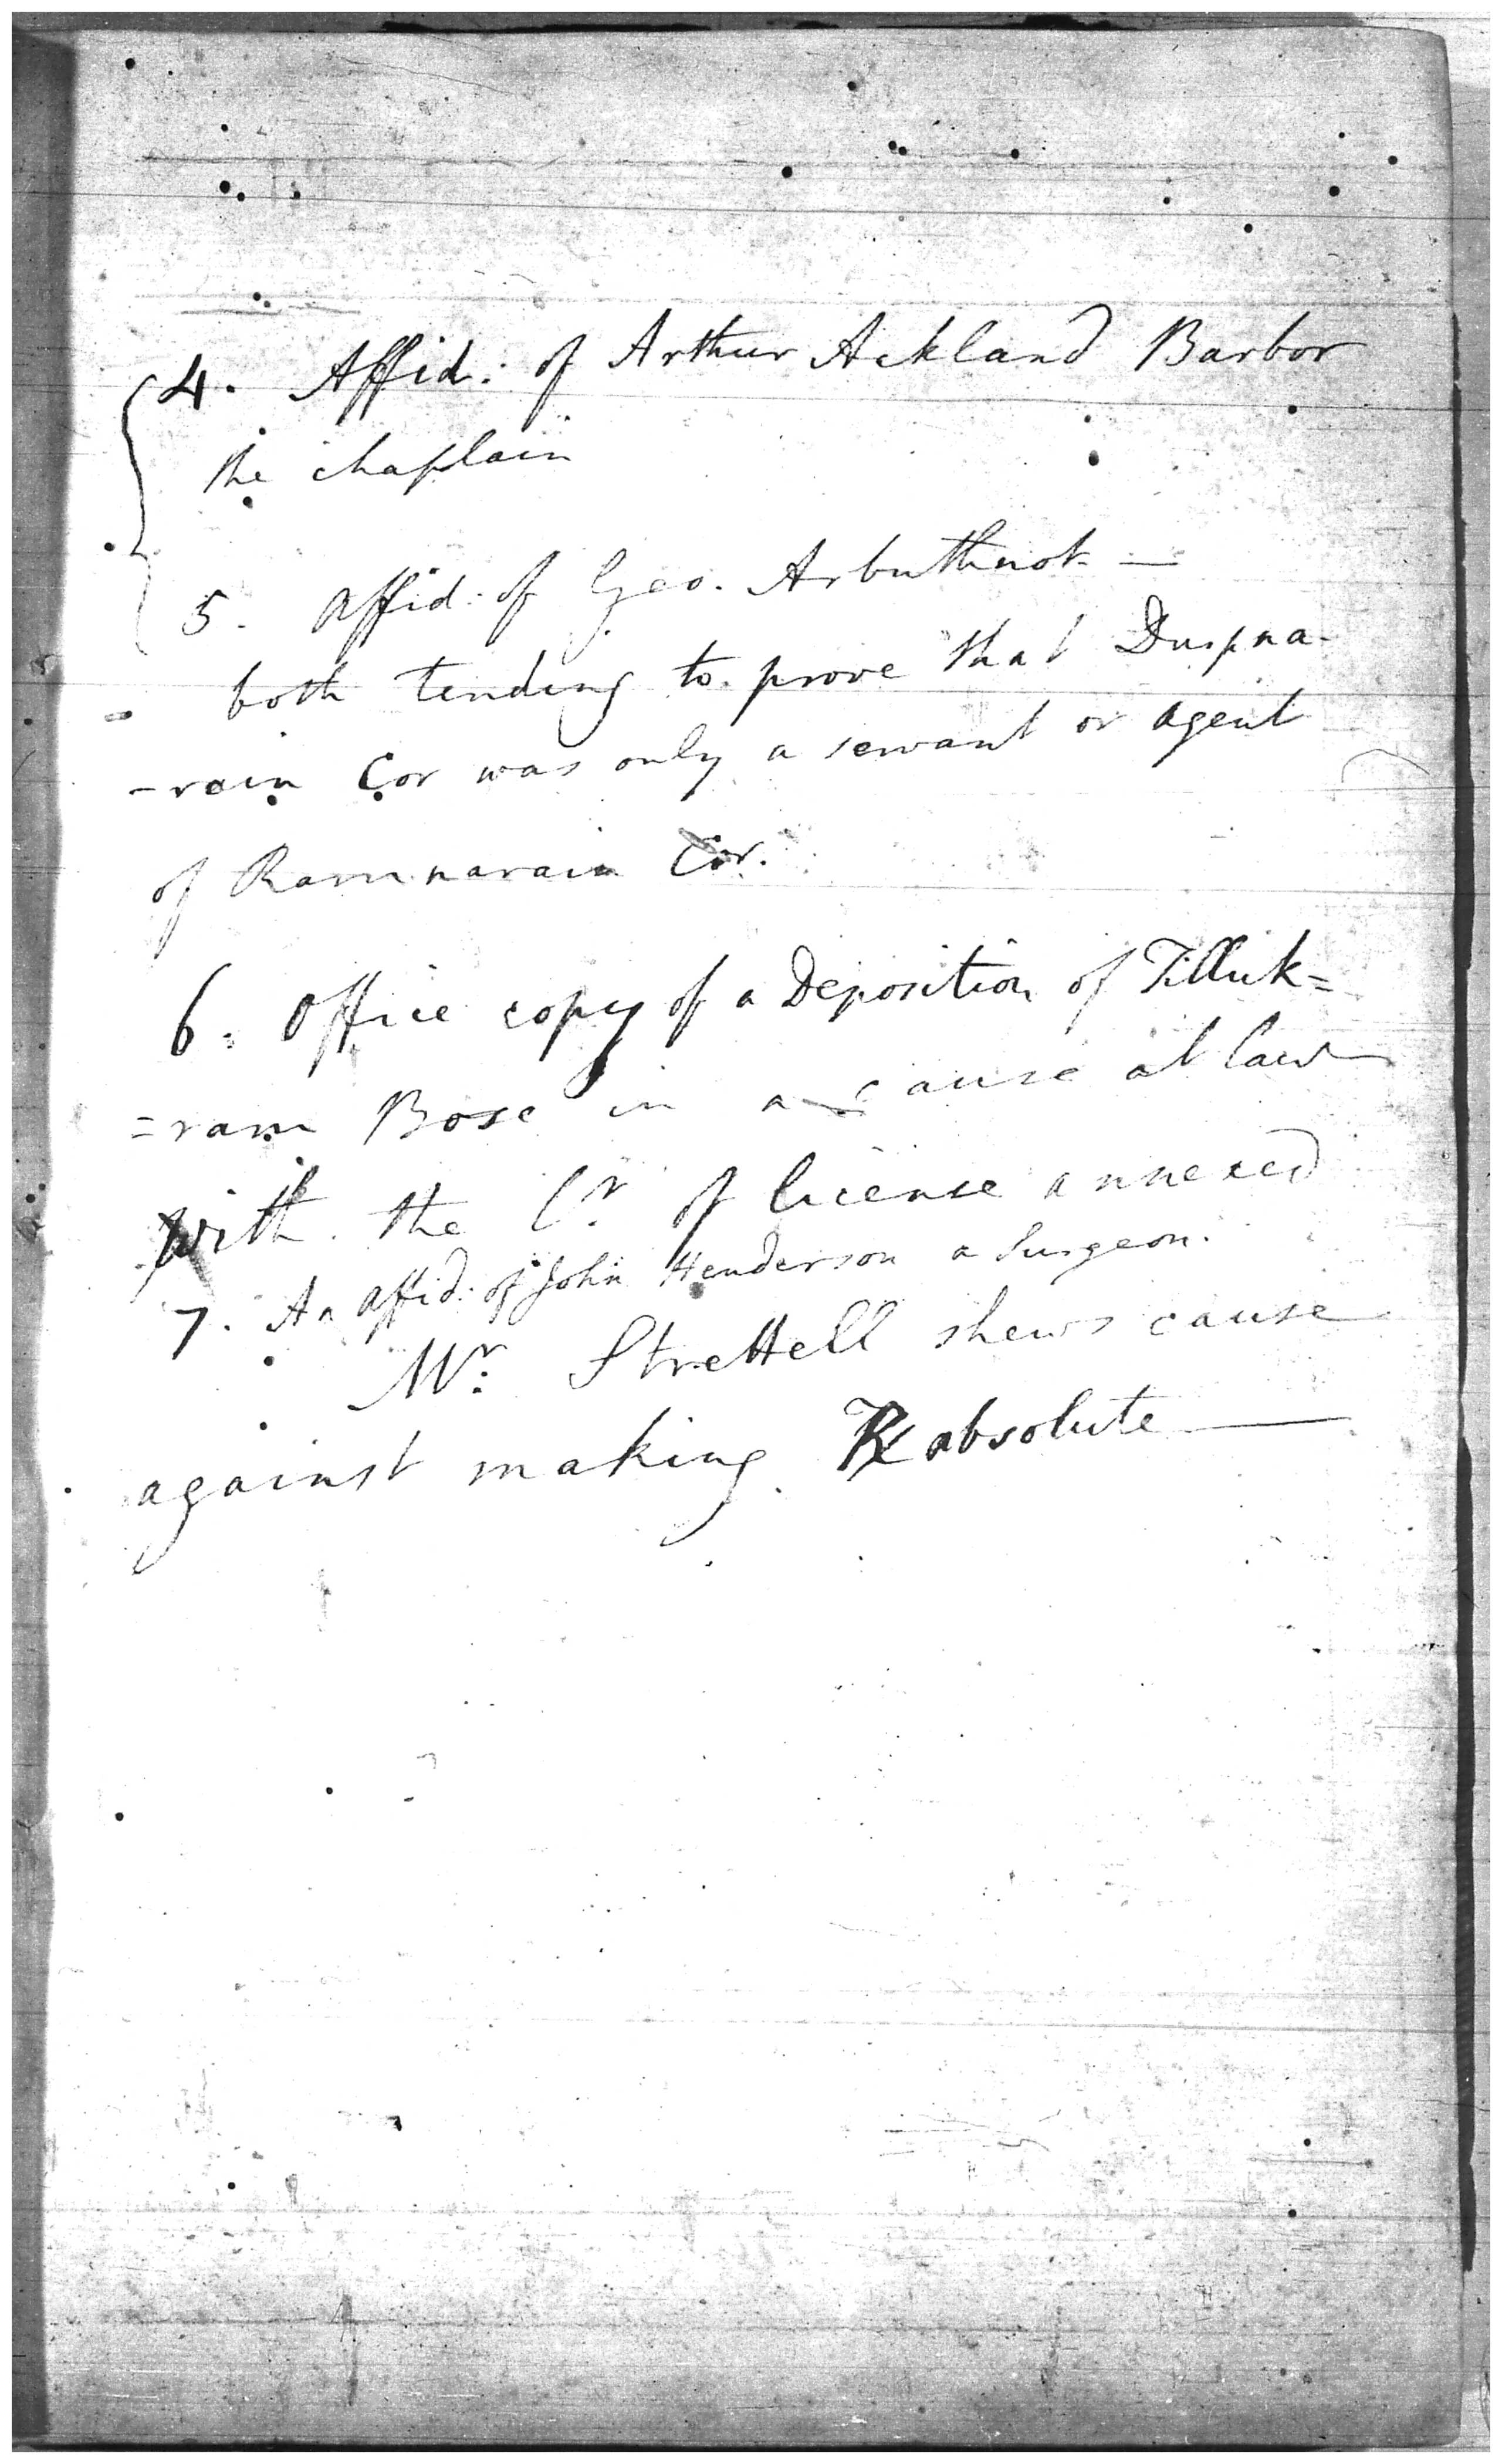 4. Affid: of Arthur Ackland Barbor
the chaplain
5. Affid: of Geo. Arbuthnot —
both tending to prove that Duspna-
-rain Cor was only a servant or agent
of Ramnarain Cor.
6. Office copy of a Deposition of Tilluk=
=ram Bose in a cause at law
with the Cr. of license annexed
7. An affid: of John Henderson a Surgeon.
Mr: Strettell shews cause
against making R absolute —